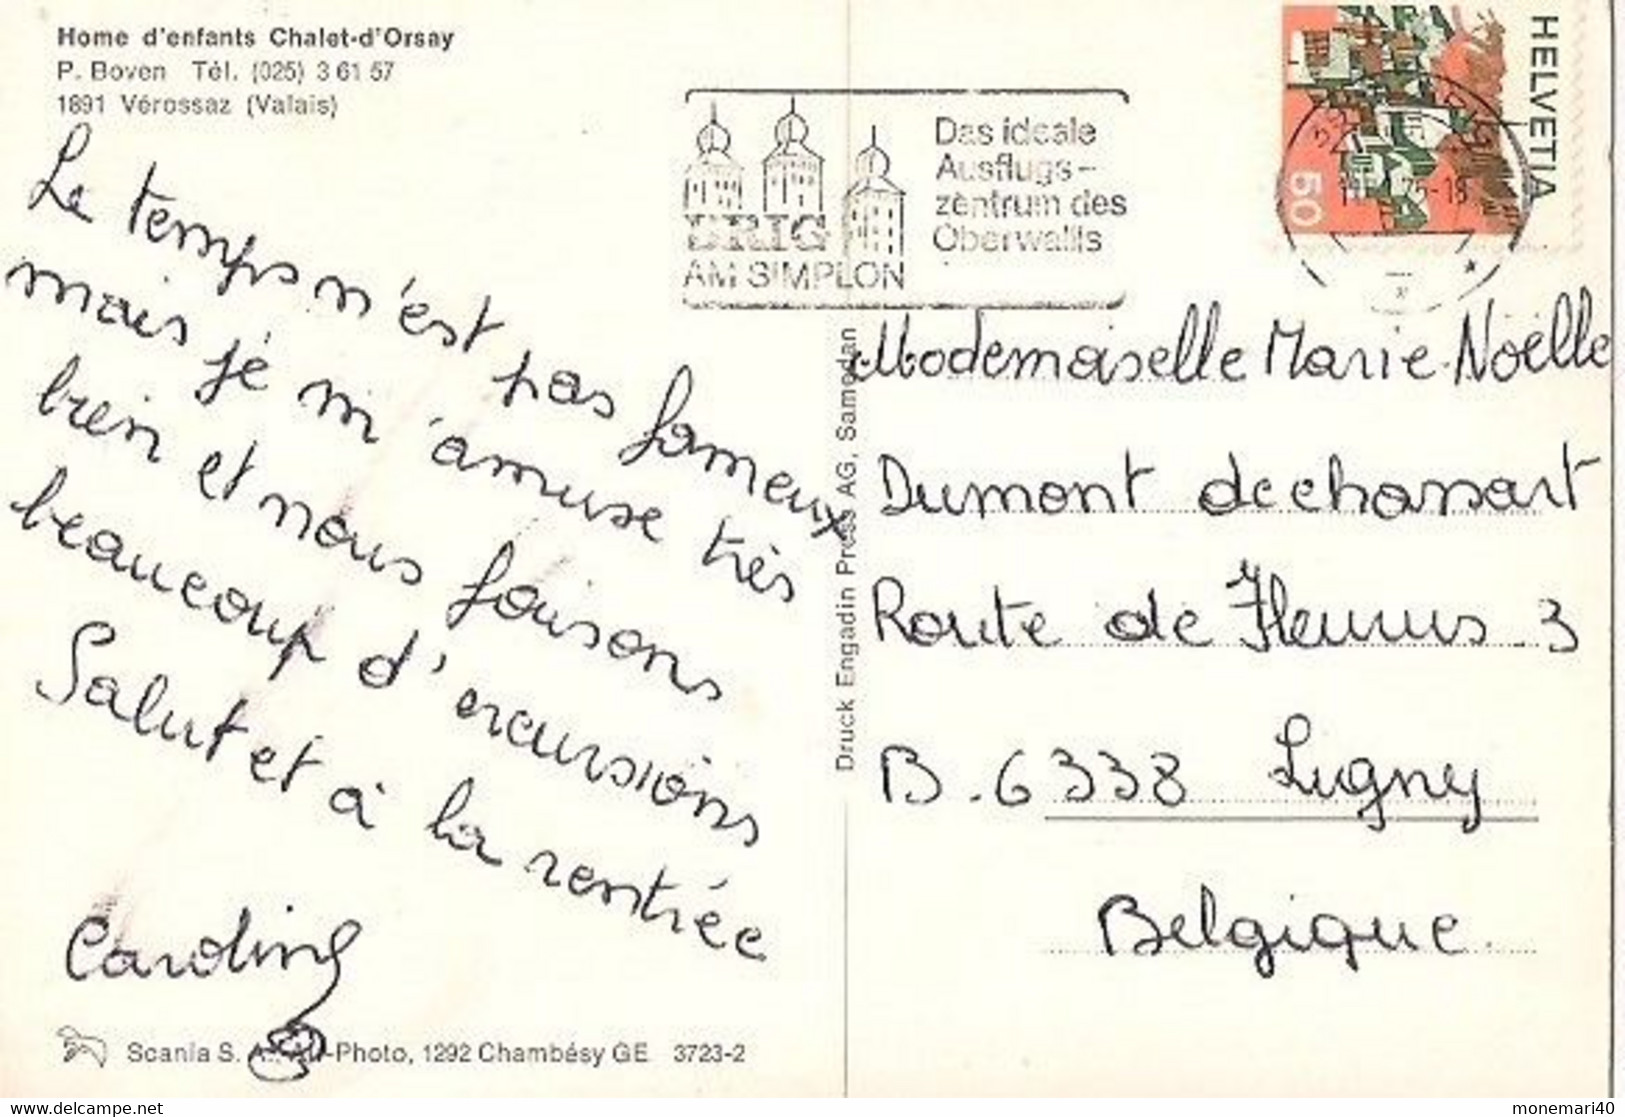 Home d'enfants Chalet-d'Orsay
P. Boven Tél. (025) 3 61 57
1891 Vérossaz (Valais)
Le temps n'est pas fameux
mais je m'amuse très
bien et nous faisons
beaucoup d'excursions
Salut et à la rentrée
Caroline
Scania S. A. Photo, 1292 Chambésy GE 3723-2
Druck Engadin Press AG, Samedan
BRIG
AM SIMPLON
Das ideale
Ausflugs-
zentrum des
Oberwallis
HELVETIA
50
Mademoiselle Marie-Noëlle
Dumont de chassart
Route de Fleurus 3
B. 6338 Ligny
Belgique
www.delcampe.net
monemari40